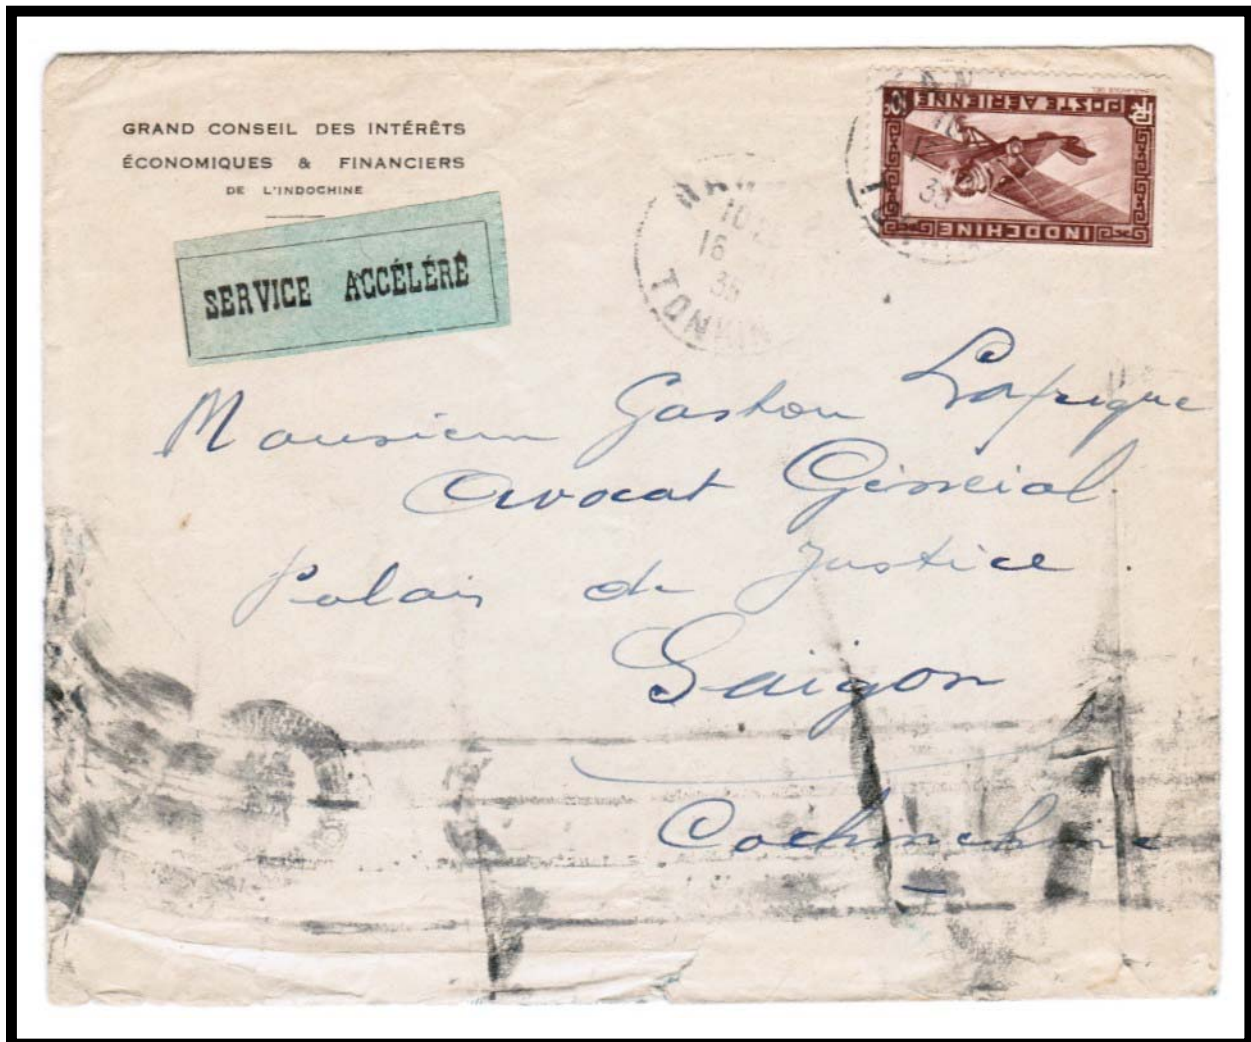 GRAND CONSEIL DES INTÉRÊTS
ÉCONOMIQUES & FINANCIERS
DE L'INDOCHINE
SERVICE ACCÉLÉRÉ
POSTE AÉRIENNE
INDOCHINE
TONKIN
Monsieur Gaston Lafrique
Avocat Général
Palais de Justice
Saigon
Cochinchine